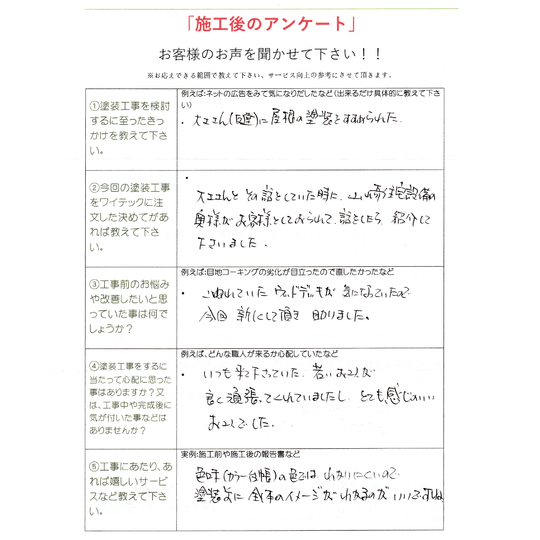 「施工後のアンケート」
お客様のお声を聞かせて下さい！！
※お応えできる範囲で教えて下さい、サービス向上の参考にさせて頂きます。
①塗装工事を検討
するに至ったきっ
かけを教えて下さ
い。
例えば:ネットの広告をみて気になりだしたなど(出来るだけ具体的に教えて下さ
い)
・大工さん()に屋根の塗装をすすめられた.
②今回の塗装工事
をワイテックに注
文した決めてがあ
れば教えて下さ
い。
・
大工さんと その話をしていた時に、山﨑住宅設備の
奥様が お客様としておられて、話をしたら 紹介して
下さいました。
③工事前のお悩み
や改善したいと思
っていた事は何で
しょうか？
例えば:目地コーキングの劣化が目立ったので直したかったなど
・ こわれていた ウッドデッキが 気になっていたので
今回 新しくして頂き 助りました。
④塗装工事をするに
当たって心配に思った
事はありますか？又
は、工事中や完成後に
気が付いた事などは
ありませんか？
例えば、どんな職人が来るか心配していたなど
・ いつも来て下さっていた 若いお二人が
良く頑張ってくれていましたし、とても感じのいい
お二人でした。
⑤工事にあたり、あ
れば嬉しいサービ
スなど教えて下さ
い。
実例:施工前や施工後の報告書など
色味(カラー台帳)の色では わかりにくいので
塗装前に 全体のイメージが わかるのが いいですね